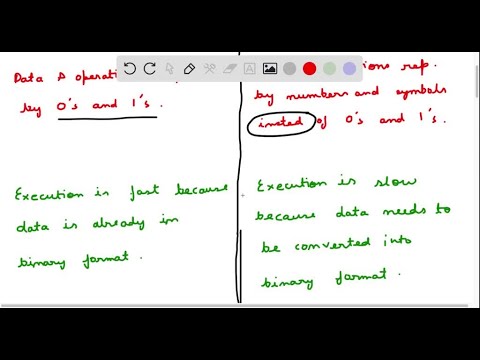 Data & operati
by 0's and 1's.
ions rep.
by numbers and symbols
insted of 0's and 1's.
Execution is fast because
data is already in
binary format.
Execution is slow
because data needs to
be converted into
binary format.